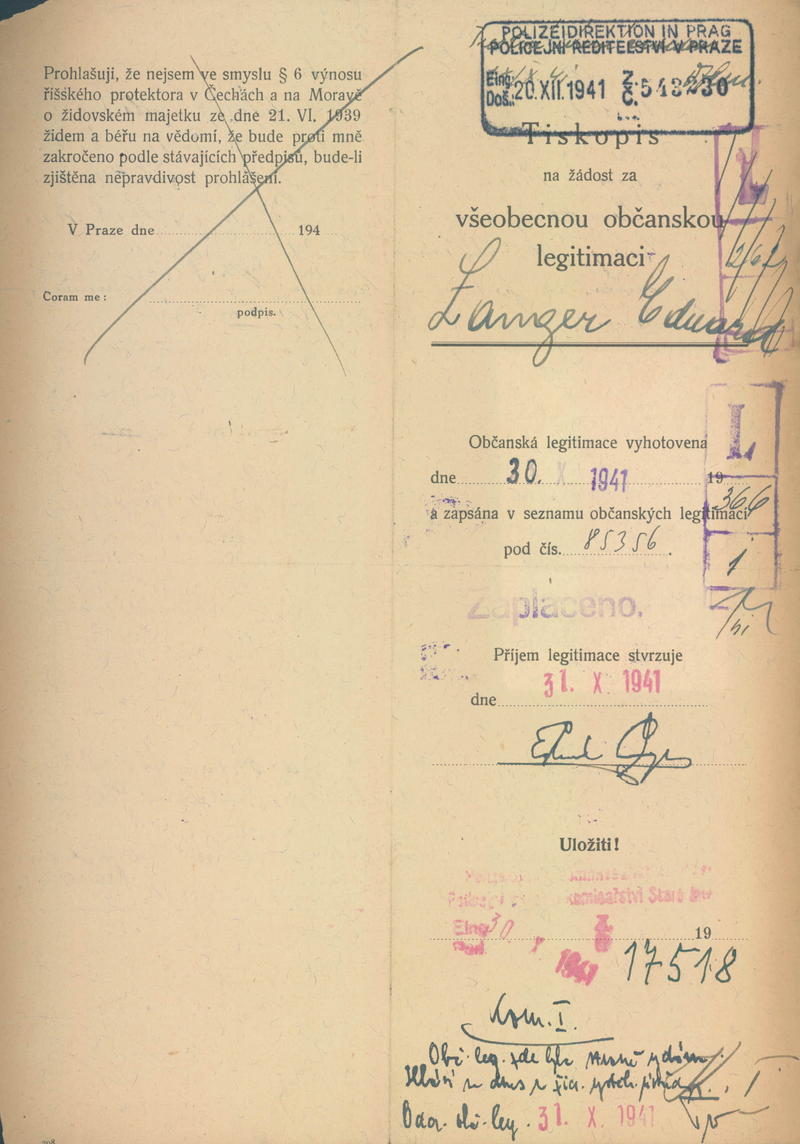 Prohlašuji, že nejsem ve smyslu § 6 výnosu
říšského protektora v Čechách a na Moravě
o židovském majetku ze dne 21. VI. 1939
židem a béřu na vědomí, že bude proti mně
zakročeno podle stávajících předpisů, bude-li
zjištěna nepravdivost prohlášení.
V Praze dne 194
Coram me :
podpis.
POLIZEIDIREKTION IN PRAG
POLICEJNÍ ŘEDITELSTVÍ V PRAZE
Eing.
Doš. 20. XII. 1941 Z. Č. 543230
Tiskopis
na žádost za
všeobecnou občanskou
legitimaci
Langer Eduard
Občanská legitimace vyhotovena
L
dne 30. X 1941 19
366
a zapsána v seznamu občanských legitimací
pod čís. 85356.
1
Zaplaceno.
Příjem legitimace stvrzuje
dne 31. X. 1941
Uložiti!
komisařství Staré
Eing. 30 X 1941 19
17518
Kom. I.
Obč. leg. zde
31. X. 1941